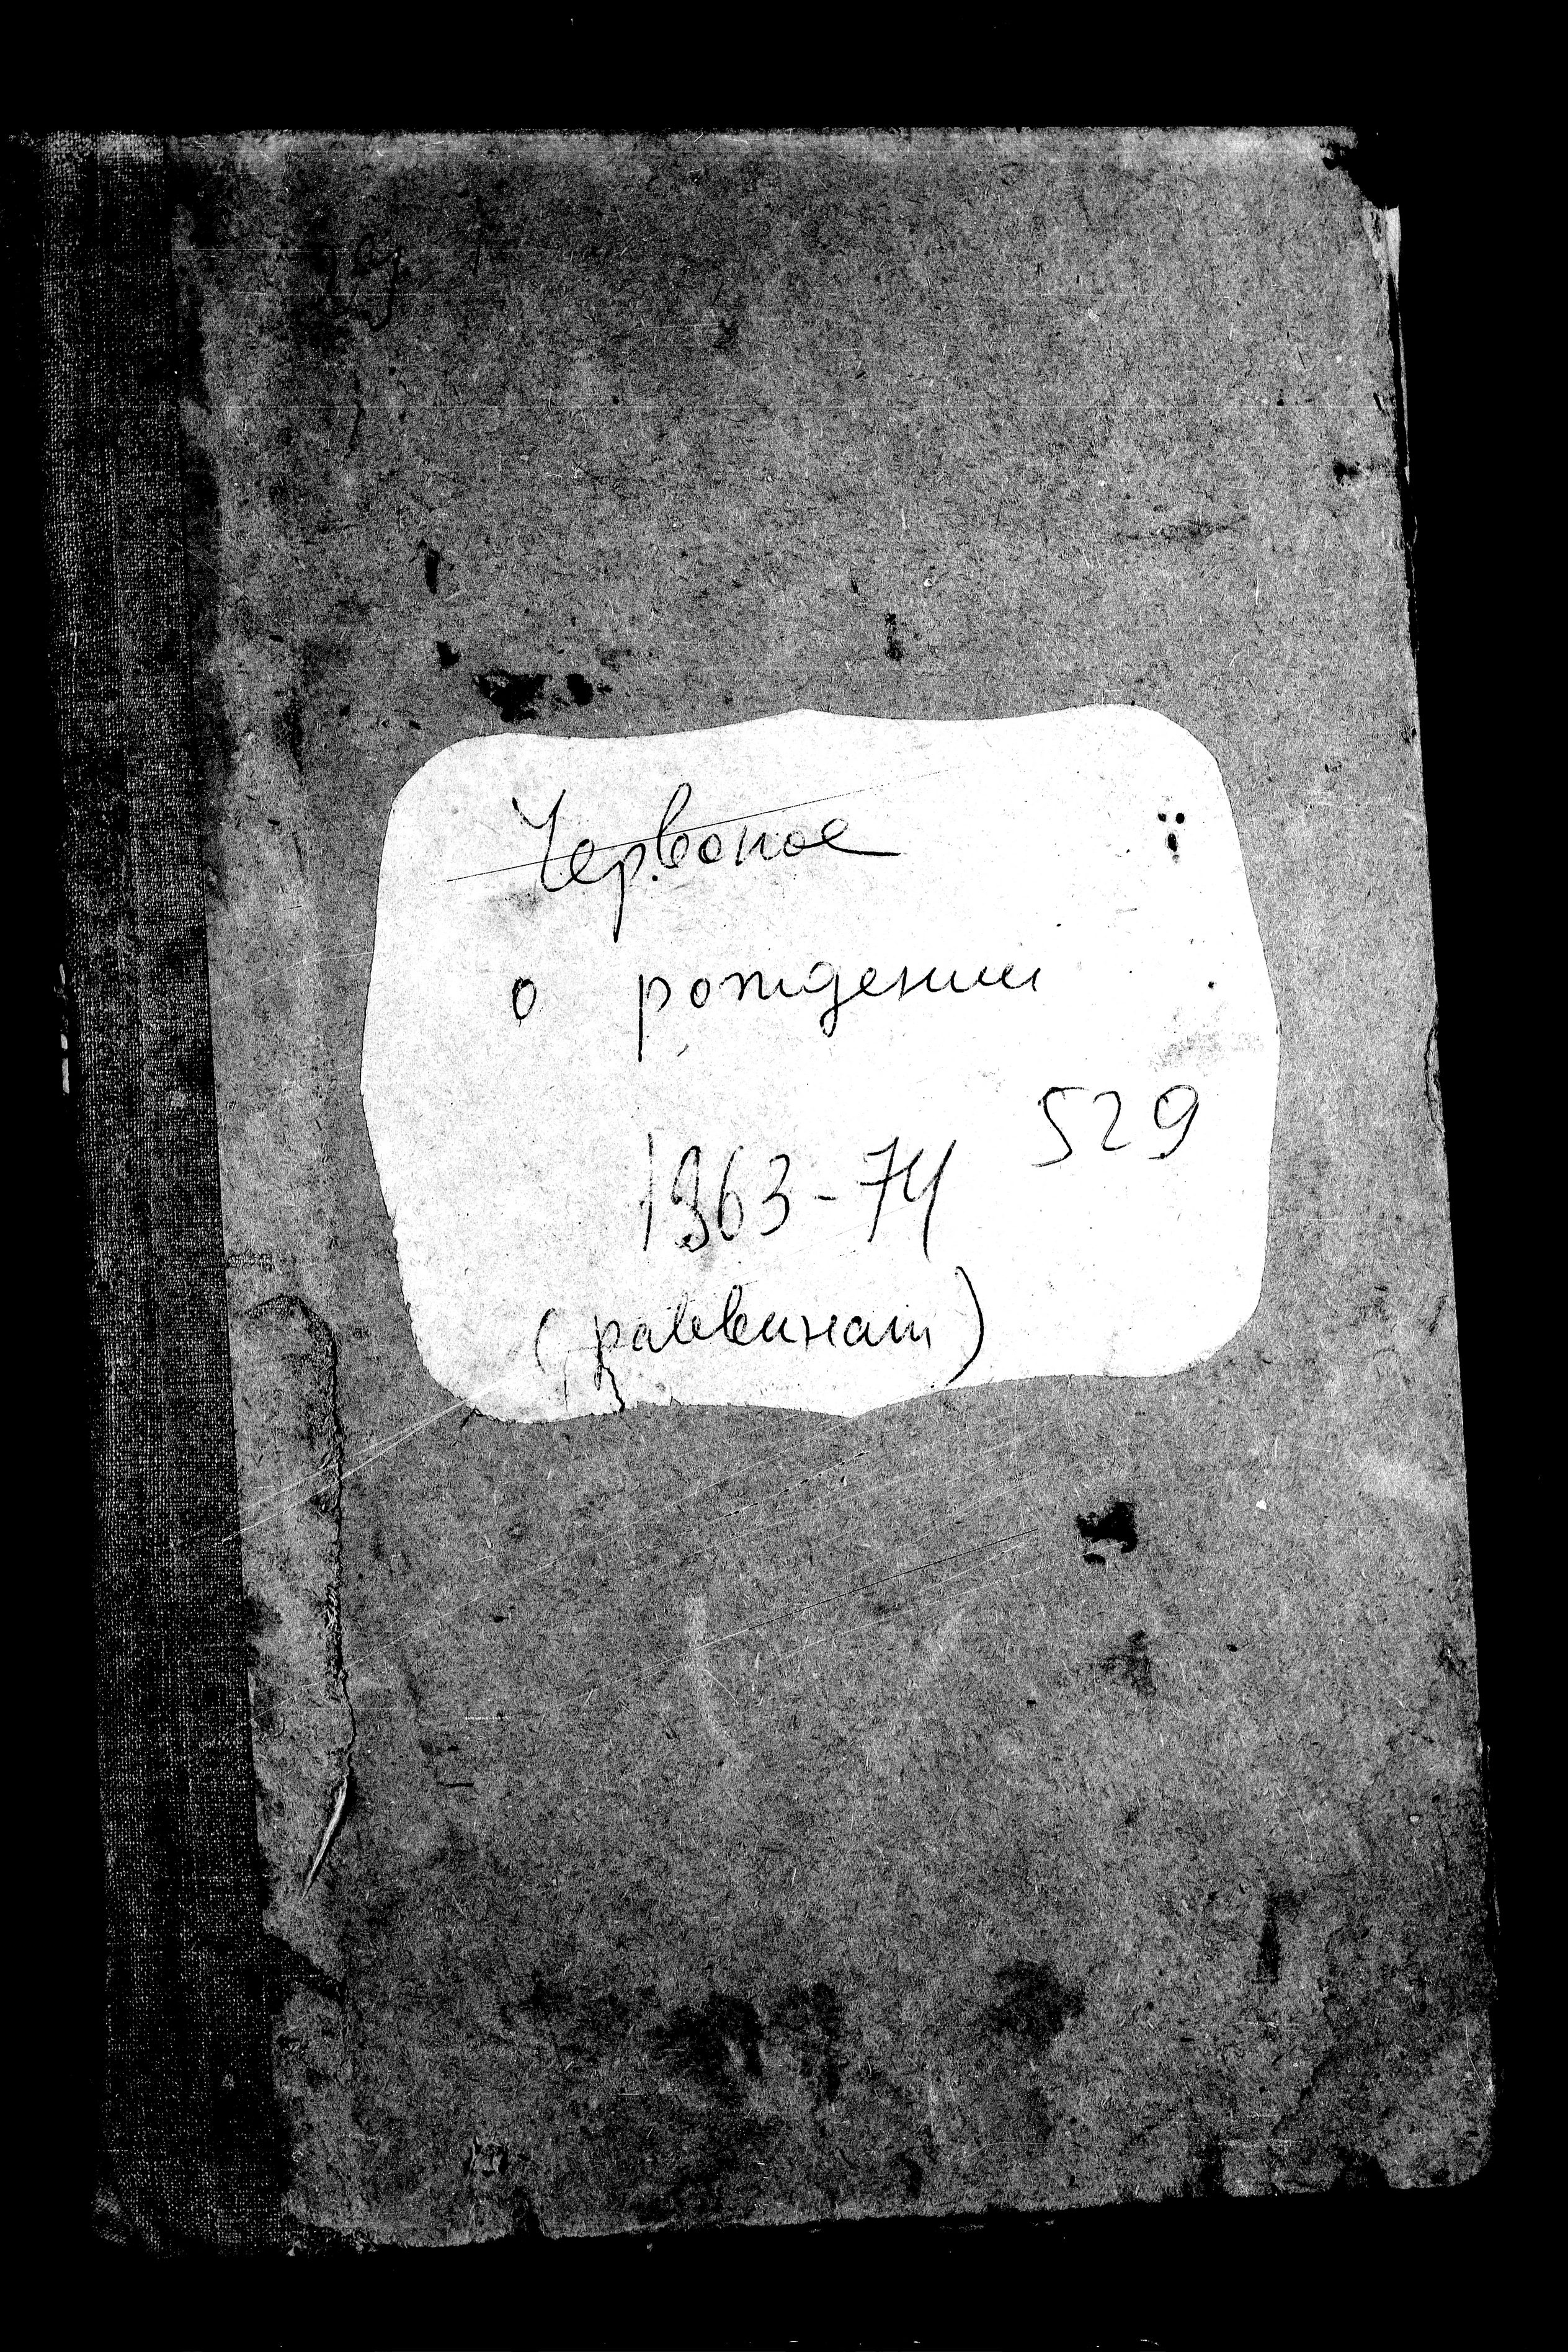 Червоное
о рождении
529
1863-74
(раввинат)